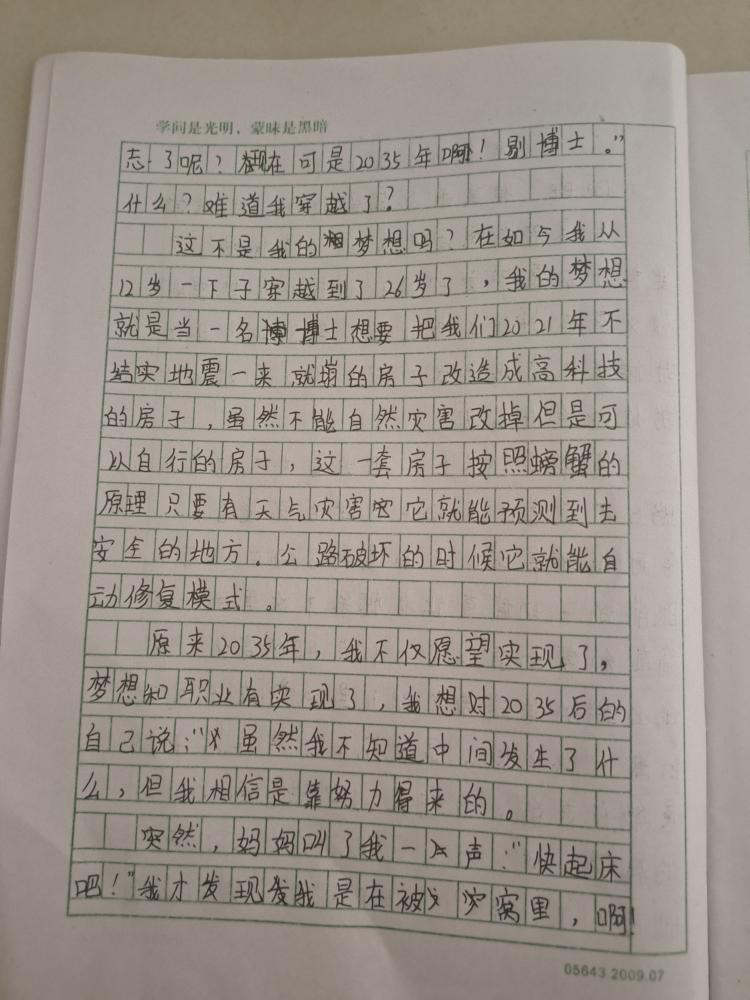 学问是光明，蒙昧是黑暗
志了呢？现在可是2035年啊！别博士。”
什么？难道我穿越了？
这不是我的梦想吗？在如今我从
12岁一下子穿越到了26岁了，我的梦想
就是当一名博士想要把我们2021年不
结实地震一来就塌的房子改造成高科技
的房子，虽然不能自然灾害改掉但是可
以自行的房子，这一套房子按照螃蟹的
原理只要有天气灾害它就能预测到去
安全的地方。公路破坏的时候它就能自
动修复模式。
原来2035年，我不仅愿望实现了，
梦想和职业有实现了，我想对2035后的
自己说：“虽然我不知道中间发生了什
么，但我相信是靠努力得来的。
突然，妈妈叫了我一声：“快起床
吧！”我才发现我是在被窝里，啊！
05643.2009.07